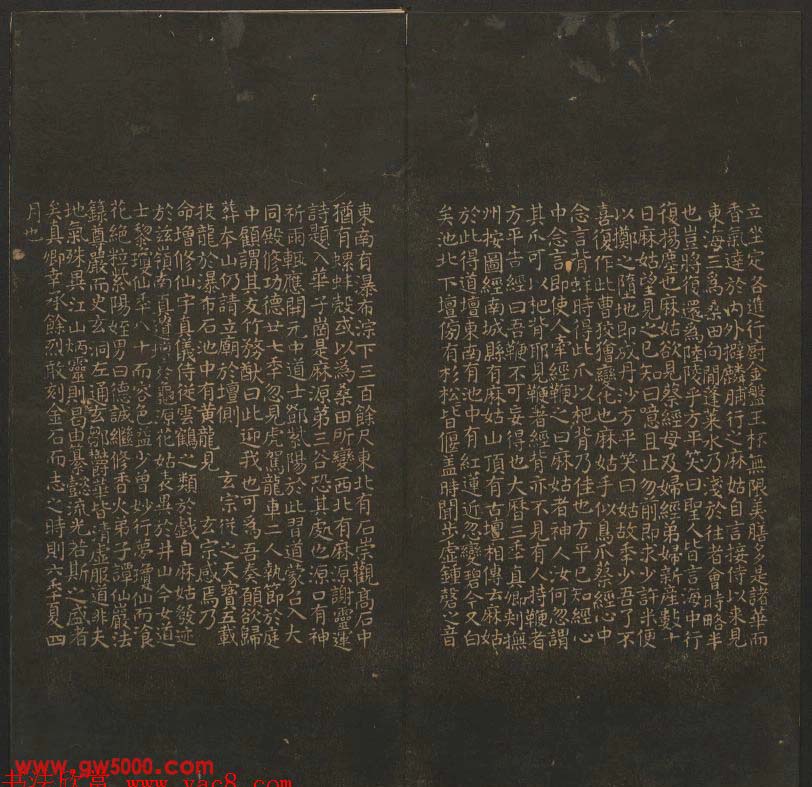 立坐定各進行廚金盤玉杯無限美膳多是諸華而
香氣達於內外擗麟脯行之麻姑自言接待以來見
東海三為桑田向間蓬萊水乃淺於往者會時略半
也豈將復還為陸陵乎方平笑曰聖人皆言海中行
復揚塵也麻姑欲見蔡經母及婦經弟婦新產數十
日麻姑望見之已知曰噫且止勿前即求少許米便
以擲之墮地即成丹沙方平笑曰姑故年少吾了不
喜復作此曹狡獪變化也麻姑手似鳥爪蔡經心中
念言背蛘時得此爪以杷背乃佳也方平已知經心
中念言即使人牽經鞭之曰麻姑者神人汝何忽謂
其爪可以杷背耶見鞭著經背亦不見有人持鞭者
方平告經曰吾鞭不可妄得也大曆三年真卿刺撫
州按圖經南城縣有麻姑山頂有古壇相傳云麻姑
於此得道壇東南有池中有紅蓮近忽變碧今又白
矣池北下壇傍有杉松皆偃蓋時聞步虛鍾磬之音
東南有瀑布淙下三百餘尺東北有石崇觀高石中
猶有螺蚌殼或以為桑田所變西北有麻源謝靈運
詩題入華子崗是麻源第三谷恐其處也源口有神
祈雨輒應開元中道士鄧紫陽於此習道蒙召入大
同殿修功德廿七年忽見虎駕龍車二人執節於庭
中顧謂其友竹務猷曰此迎我也可為吾奏願欲歸
葬本山仍請立廟於壇側 玄宗從之天寶五載
投龍於瀑布石池中有黃龍見 玄宗感焉乃
命增修仙宇真儀侍從雲鶴之類於戲自麻姑發迹
於茲嶺南真遺壇於龜源花姑表異於井山今女道
士黎瓊仙年八十而容色益少曾妙行夢瓊仙而飡
花絕粒紫陽姪男曰德誠繼修香火弟子譚仙巖法
籙尊嚴而史玄洞左通玄鄒鬱華皆清虛服道非夫
地氣殊異江山炳靈則曷由纂懿流光若斯之盛者
矣真卿幸承餘烈敢刻金石而志之時則六年夏四
月也
www.gw5000.com
书法欣赏 www.yac8.com